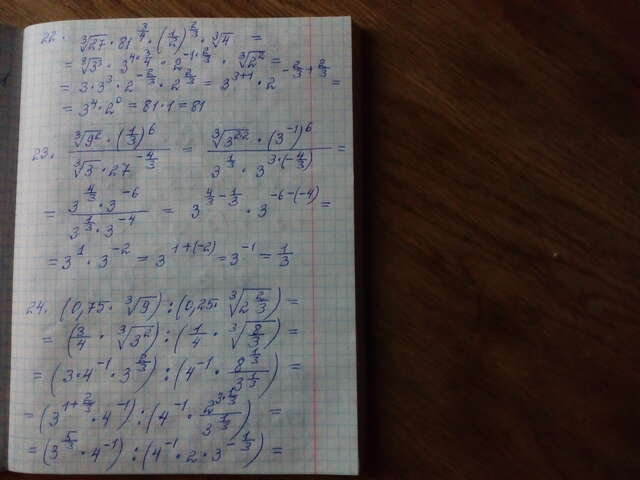 22. ∛27 · 81^(3/4) · (1/2)^(2/3) · ∛4 =
= ∛3³ · 3^(4·3/4) · 2^(-1·2/3) · ∛2² =
= 3 · 3³ · 2^(-2/3) · 2^(2/3) = 3^(3+1) · 2^(-2/3+2/3) =
= 3⁴ · 2⁰ = 81 · 1 = 81
23. (∛9² · (1/3)⁶) / (∛3 · 27^(-4/3)) = (∛3^(2·2) · (3^(-1))⁶) / (3^(1/3) · 3^(3·(-4/3))) =
= (3^(4/3) · 3^(-6)) / (3^(1/3) · 3^(-4)) = 3^(4/3-1/3) · 3^(-6-(-4)) =
= 3¹ · 3^(-2) = 3^(1+(-2)) = 3^(-1) = 1/3
24. (0,75 · ∛9) : (0,25 · ∛(2 2/3)) =
= (3/4 · ∛3²) : (1/4 · ∛(8/3)) =
= (3 · 4^(-1) · 3^(2/3)) : (4^(-1) · 8^(1/3) / 3^(1/3)) =
= (3^(1+2/3) · 4^(-1)) : (4^(-1) · 2^(3·1/3) / 3^(1/3)) =
= (3^(5/3) · 4^(-1)) : (4^(-1) · 2 · 3^(-1/3)) =